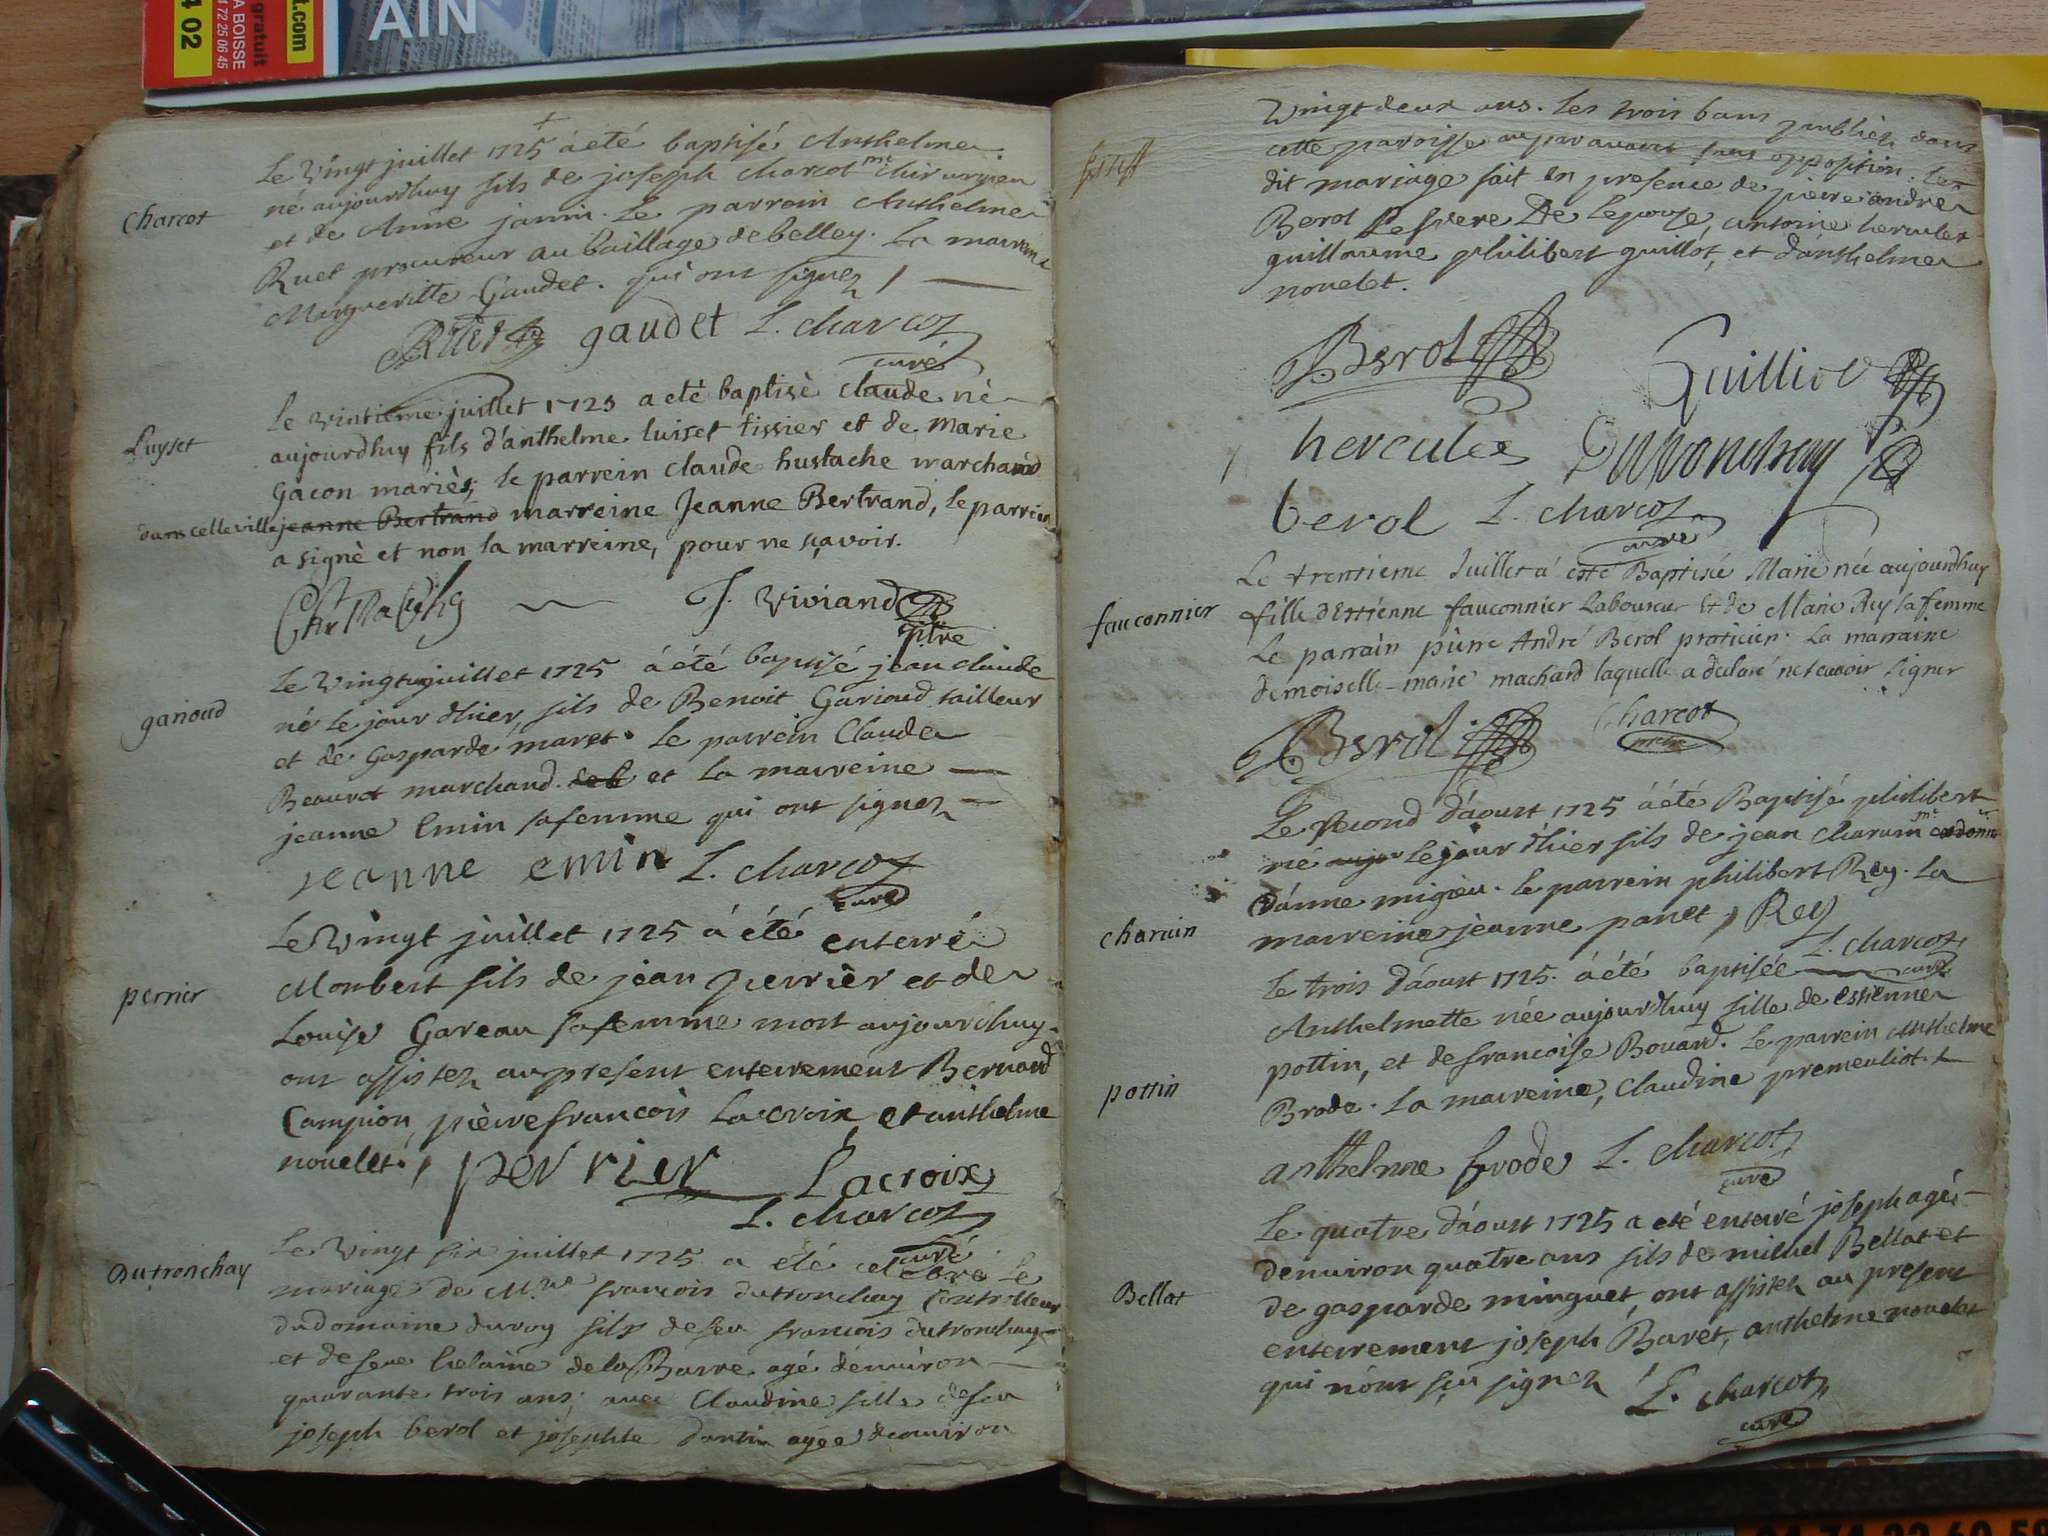 4 02
A BOISSE
72 25 06 45
gratuit
t.com
AIN
Le vingt juillet 1725 à été baptisé Anthelme
né aujourdhuy fils de joseph charcot mt chirurgien
et de Anne janin. Le parrain Anthelme
Ruet procureur au baillage debelley. La marreine
Margueritte Gaudet. qui ont signez
Charcot
Ruet gaudet L. charcot
curé
Le vintieme juillet 1725 a eté baptisè claude nè
aujourdhuy fils d'anthelme luiset tissier et de marie
Luyset
gacon mariès, le parrein claude hustache marchand
dans celle ville jeanne Bertrand marreine Jeanne Bertrand, le parrein
a signè et non la marreine, pour ne sçavoir.
J. Viviand
ptre
Le vingt juillet 1725 à été baptisé jean claude
né le jour d'hier, fils de Benoit Garioud tailleur
garioud
et de Gasparde maret. Le parrein Claude
Beauret marchand. et la marreine
jeanne Emin safemme qui ont signez
jeanne emin L. charcot
curé
Le vingt juillet 1725 à été enterré
Monbert fils de jean perrier et de
perrier
Louise Gareau safemme mort aujourdhuy
ont assistez aupresent enterrement Bernard
Campion, pièrre francois Lacroix et anthelme
nouelet.
perrier Lacroix
L. charcot
curé
Le vingt six juillet 1725 a été celebré Le
Dutronchay
mariage de francois dutronchay Controlleur
dudomaine duroy fils defeu francois dutronchay
et defeue helaine de la Barre agé dénuiron
quarante trois ans, avec Claudine fille defeu
joseph berol et josephte dantin agee denuiron
vingtdeux ans. Les trois bans publiés dans
cette paroisse auparavant sans opposition. Le
dit mariage fait en presence de pierre andre
Berol Lefrere De Lepouse, antoine hercules
guillaume philibert guillot, et dánthelme
nouelet.
Berol Guilliot
hercules Dutronchay
berol L. charcot
curé
Le trentieme Juillet a esté Baptisé Marie née aujourdhuy
fauconnier
fille destienne fauconnier Laboureur et de Marie Rey sa femme
Le parrain pierre André Berol praticien. La marraine
demoiselle marie machard laquelle a declaré ne scavoir signer
Berol Charcot
prtre
Le second dáoust 1725 à été Baptisé philibert
né aujour le jour d'hier fils de jean charuin mt cordonnier
dánne migieu. le parrein philibert Rey. La
charuin
marreine jèanne panet, Rey
L. charcot
curé
Le trois dáoust 1725. à été baptisée
Anthelmette née aujourdhuy fille de estienne
pottin, et defrancoise Bouard. Le parrein Anthelme
pottin
Brode. La marreine, Claudine premeuliot.
anthelme brode L. charcot
curé
Le quatre dáoust 1725 a eté enterré joseph agé
denuiron quatre ans fils de michel Bellat et
Bellat
de gasparde minguet, ont assistez au present
enterrement joseph Baret, anthelme nouelet
qui nónt sçu signer
L. charcot
curé
04 74 22 60 58